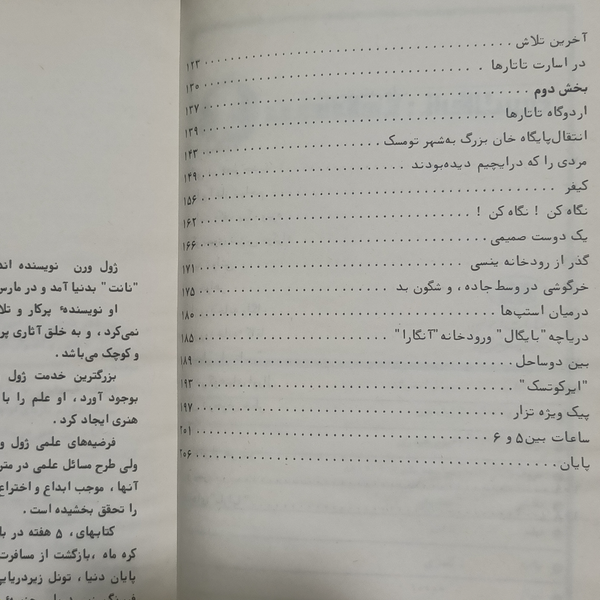 آخرین تلاش ۱۲۳
در اسارت تاتارها ۱۳۰
بخش دوم ۱۳۷
اردوگاه تاتارها ۱۳۹
انتقال پایگاه خان بزرگ به‌شهر تومسک ۱۴۳
مردی را که درایچیم دیده‌بودند ۱۴۹
کیفر ۱۵۶
نگاه کن ! نگاه کن ! ۱۶۲
یک دوست صمیمی ۱۶۶
گذر از رودخانه ینسی ۱۷۱
خرگوشی در وسط جاده ، و شگون بد ۱۷۵
درمیان استپ‌ها ۱۸۰
دریاچه "بایگال" ورودخانه "آنگارا" ۱۸۵
بین دوساحل ۱۸۹
"ایرکوتسک" ۱۹۳
پیک ویژه تزار ۱۹۷
ساعات بین ۵ و ۶ ۲۰۱
پایان ۲۰۶
ژول ورن نویسنده
"نانت" بدنیا آمد و در مارس
او نویسندهٔ پرکار و
نمی‌کرد ، و به خلق آثاری
و کوچک می‌باشد .
بزرگترین خدمت ژول
بوجود آورد ، او علم را با
هنری ایجاد کرد .
فرضیه‌های علمی ژول
ولی طرح مسائل علمی در
آنها ، موجب ابداع و اختراع
را تحقق بخشیده است .
کتابهای ، ۵ هفته در
کره ماه ، بازگشت از مسافرت
پایان دنیا ، تونل زیردریایی